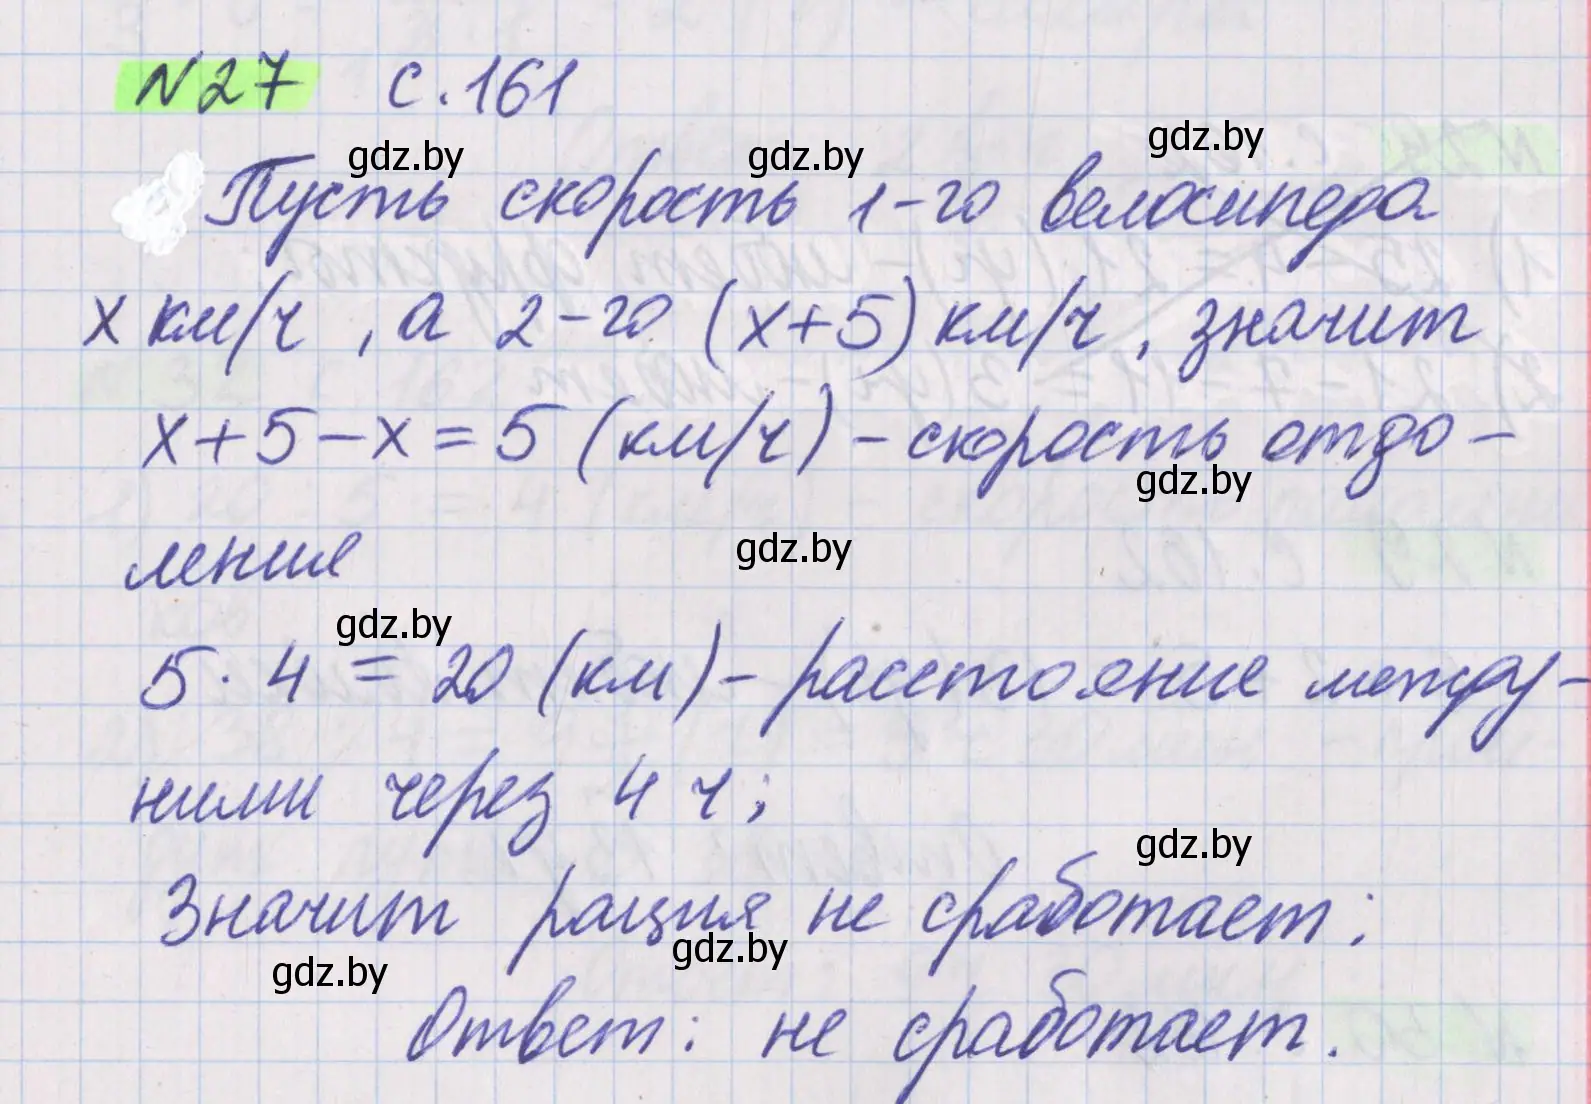 N27 с.161
gdz.by gdz.by gdz.by
Пусть скорость 1-го велосипеда
x км/ч, а 2-го (x+5) км/ч, значит
x+5-x=5 (км/ч) - скорость отда-
gdz.by
ления
gdz.by
gdz.by
5·4=20 (км) - расстояние между-
ними через 4 ч;
gdz.by
Значит рация не сработает:
gdz.by gdz.by
Ответ: не сработает.